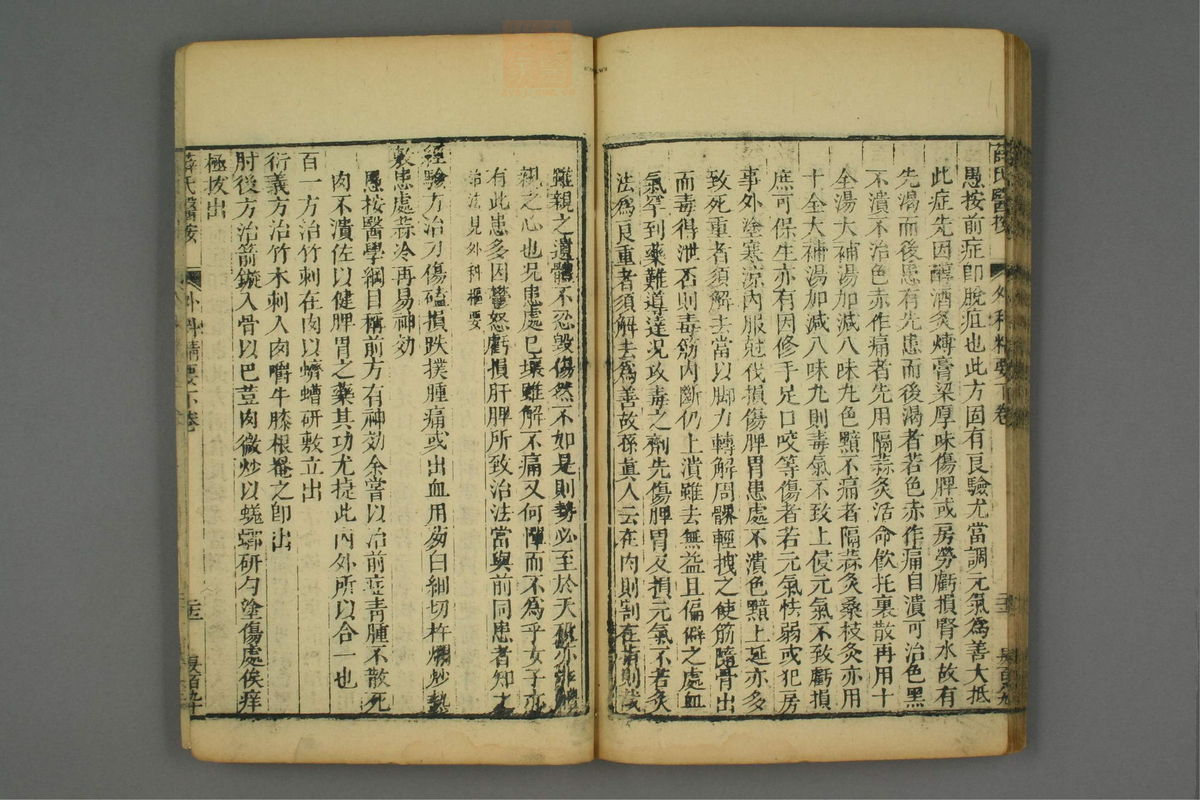 薛氏醫按 外科精要下卷
愚按前症卽脫疽也此方固有良驗尤當調元氣爲善大抵
此症先因醇酒炙煿膏粱厚味傷脾或房勞虧損腎水故有
先渴而後患有先患而後渴者若色赤作痛自潰可治色黑
不潰不治色赤作痛者先用隔蒜灸活命飮托裏散再用十
全湯大補湯加減八味丸色黯不痛者隔蒜灸桑枝灸亦用
十全大補湯加減八味丸則毒氣不致上侵元氣不致虧損
庶可保生亦有因修手足口咬等傷者若元氣怯弱或犯房
事外塗寒凉內服尅伐損傷脾胃患處不潰色黯上延亦多
致死重者須解去當以脚力轉解周髁輕拽之使筋隨骨出
而毒得泄否則毒筋內斷仍上潰雖去無益且偏僻之處血
氣罕到藥難導達况攻毒之劑先傷脾胃反損元氣不若灸
法爲良重者須解去爲善故孫眞人云在肉則割在指則截
雖親之遺體不忍毁傷然不如是則勢必至於夭
親之心也况患處已壞雖解不痛又何憚而不為乎女子亦
有此患多因鬱怒虧損肝脾所致治法當與前同患者知之
治法見外科樞要
經驗方治刀傷磕損跌撲腫痛或出血用葱白細切杵爛炒熱
敷患處蒜冷再易神効
愚按醫學綱目稱前方有神効余嘗以治前症靑腫不散死
肉不潰佐以健脾胃之藥其功尤捷此內外所以合一也
百一方治竹刺在肉以蠐螬硏敷立出
衍義方治竹木刺入肉嚼牛膝根罨之卽出
肘後方治箭鏃入骨以巴荳肉微炒以蜣螂硏勻塗傷處俟痒
極拔出
薛氏醫按 外科精要下卷